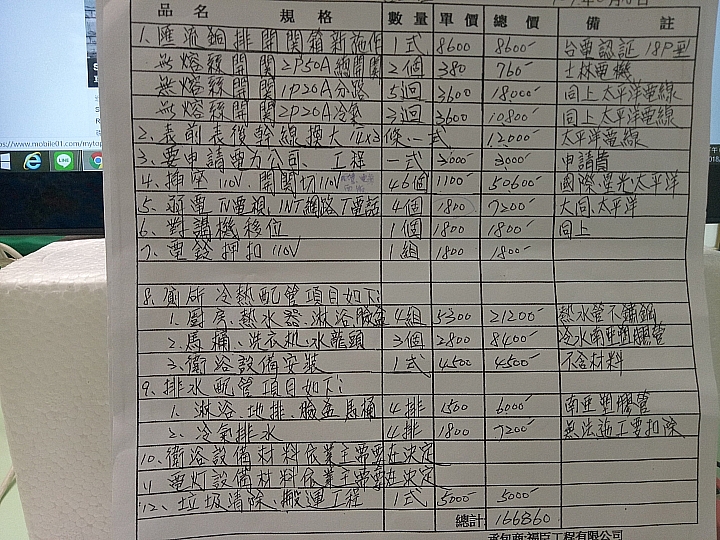 品名 規格 數量 單價 總價 備註
1. 匯流銅排開關箱新施作 1式 8600 8600 台電認証 18P型
無熔絲開關 2P50A總開關 2個 380 760 士林電機
無熔絲開關 1P20A分路 5迴 3600 18000 同上太平洋電線
無熔絲開關 2P20A冷氣 3迴 3600 10800 同上太平洋電線
2. 表前表後幹線換大 14x3條 一式 12000 太平洋電線
3. 要申請電力公司、工程 一式 3000 3000 申請
4. 插座110V、開關切110V 46個 1100 50600 國際、星光太平洋
5. 弱電TV電視、INT網路T電話 4個 1800 7200 大同、太平洋
6. 對講機移位 1個 1800 1800 同上
7. 電鈴押扣110V 1組 1800 1800
8. 廁所冷熱配管項目如下:
1. 廚房、熱水器、淋浴臉盆 4組 5300 21200 熱水管不鏽鋼
2. 馬桶、洗衣机、水龍頭 3個 2800 8400 冷水南亞塑膠管
3. 衛浴設備安裝 1式 4500 4500 不含材料
9. 排水配管項目如下:
1. 淋浴、地排、臉盆馬桶 4排 1500 6000 南亞塑膠管
2. 冷氣排水 4排 1800 7200 無法施工要扣除
10. 衛浴設備材料依業主需要在決定
11 電灯設備材料依業主需要在決定
12. 垃圾清除、搬運工程 1式 5000 5000
總計: 166860
承包商:福臣工程有限公司
https://www.mobile01.com/mytop
LINE